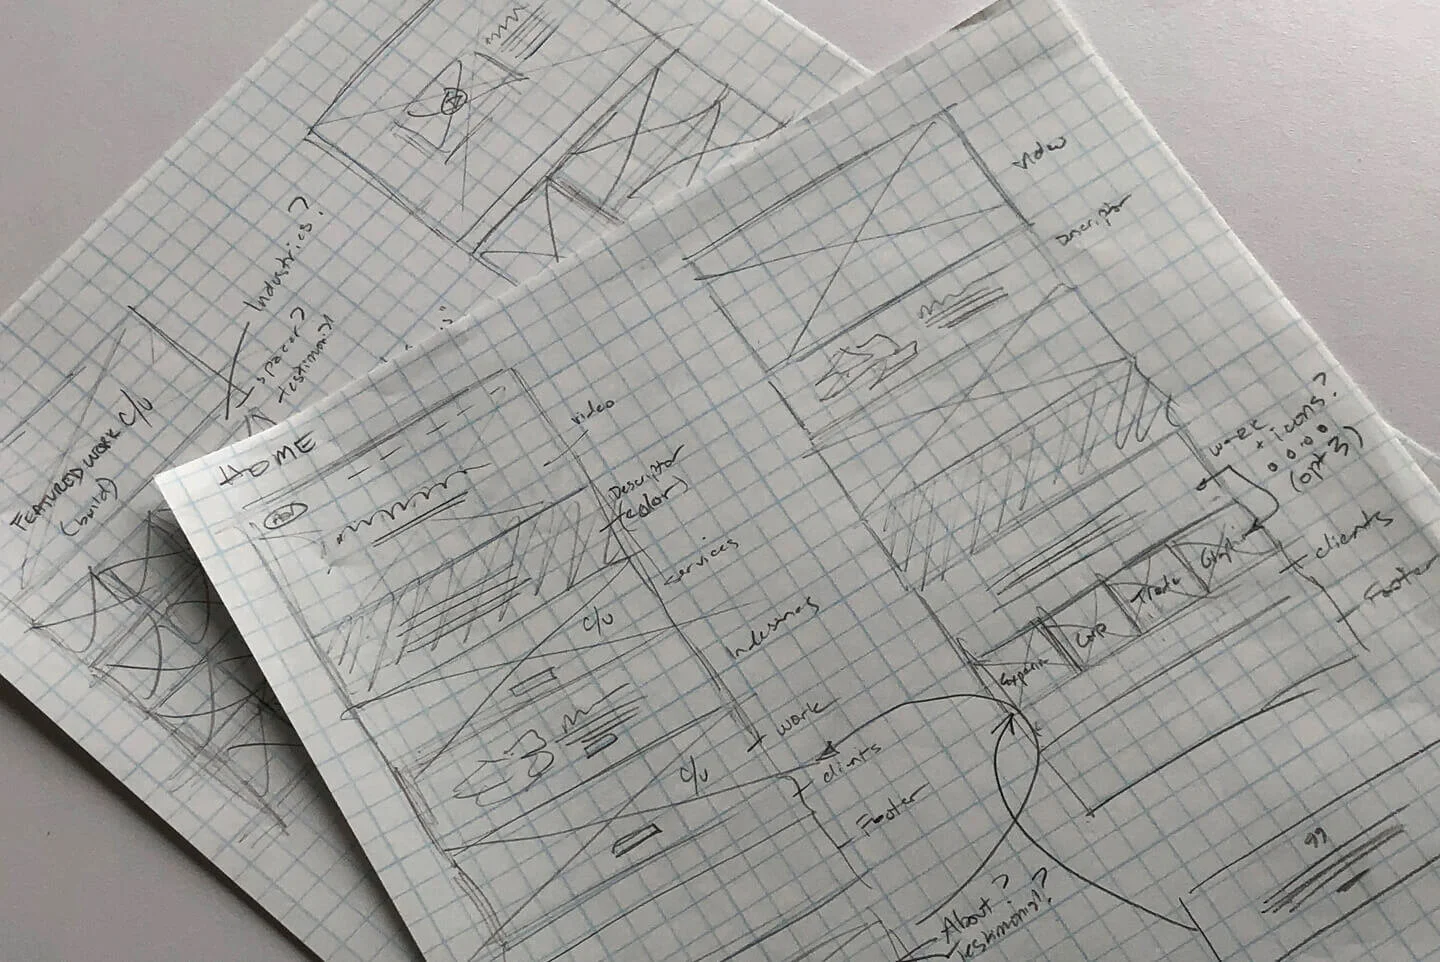 Industries?
spacer?
testimonial
FEATURED WORK C/U
(build)
HOME
video
Descriptor
(color)
services
C/U
Industries
work
C/U
clients
Footer
About?
Testimonial?
video
Descriptor
work
+ icons?
(opt 3)
clients
Footer
Corp
Trade
Graphic
"